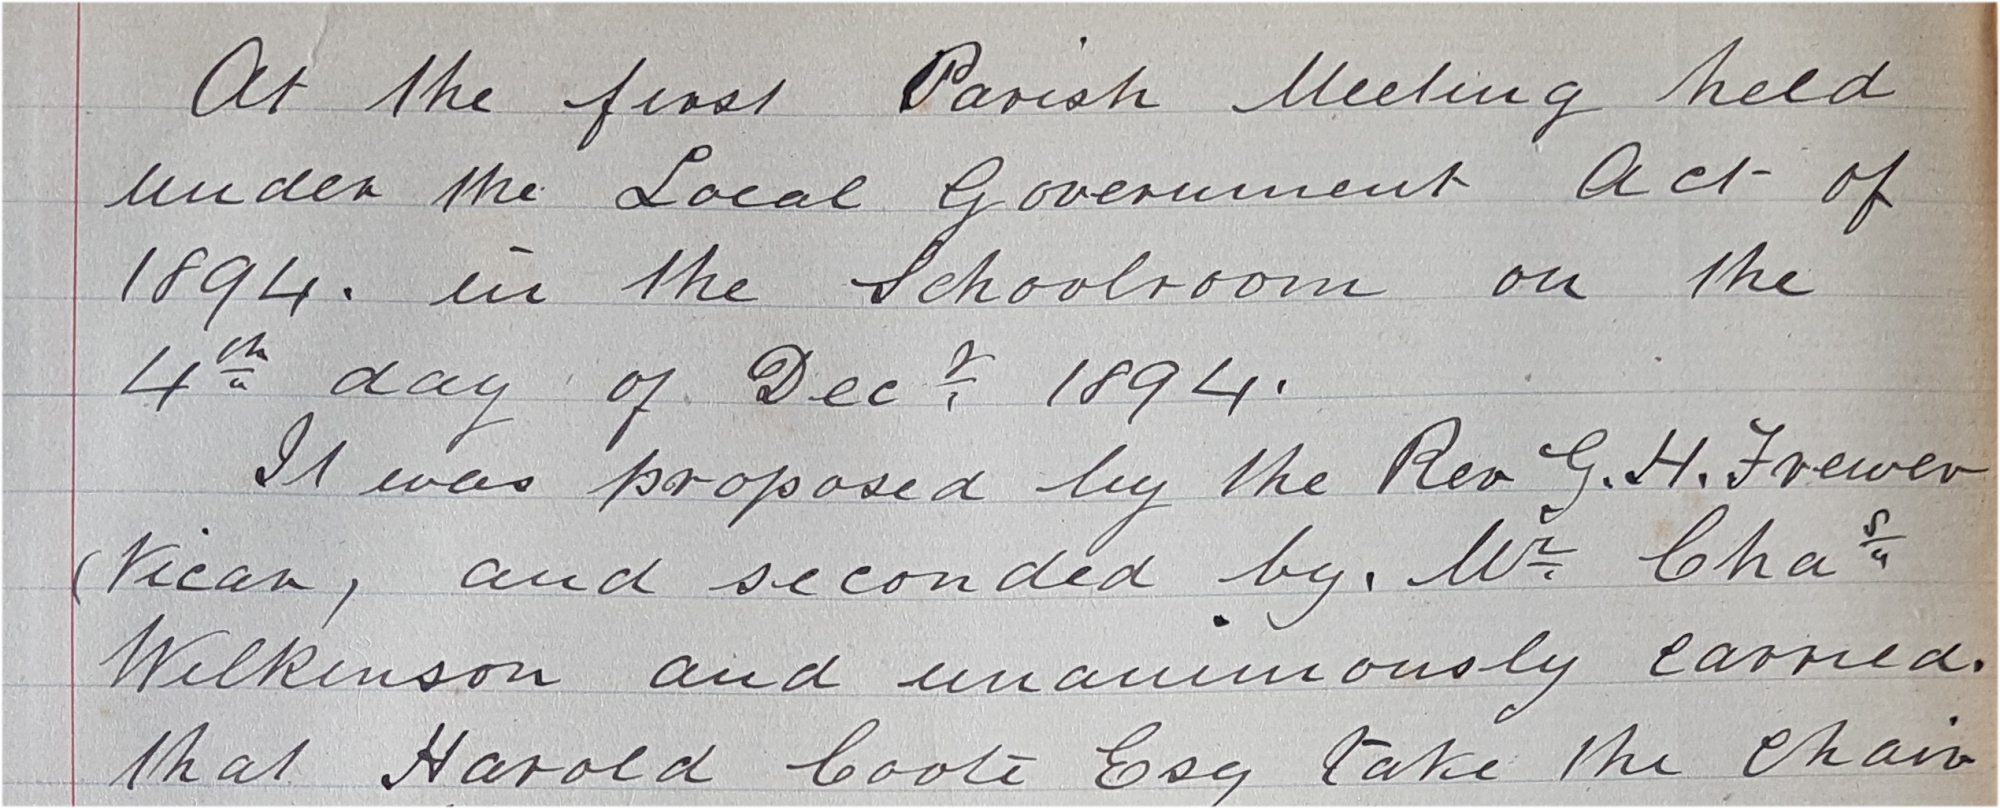 At the first Parish Meeting held
under the Local Government Act of
1894. in the Schoolroom on the
4th day of Decr 1894.
It was proposed by the Rev G. H. Frewer
(Vicar, and seconded by. Mr Chas
Wilkinson and unanimously carried.
that Harold Coote Esq take the Chair